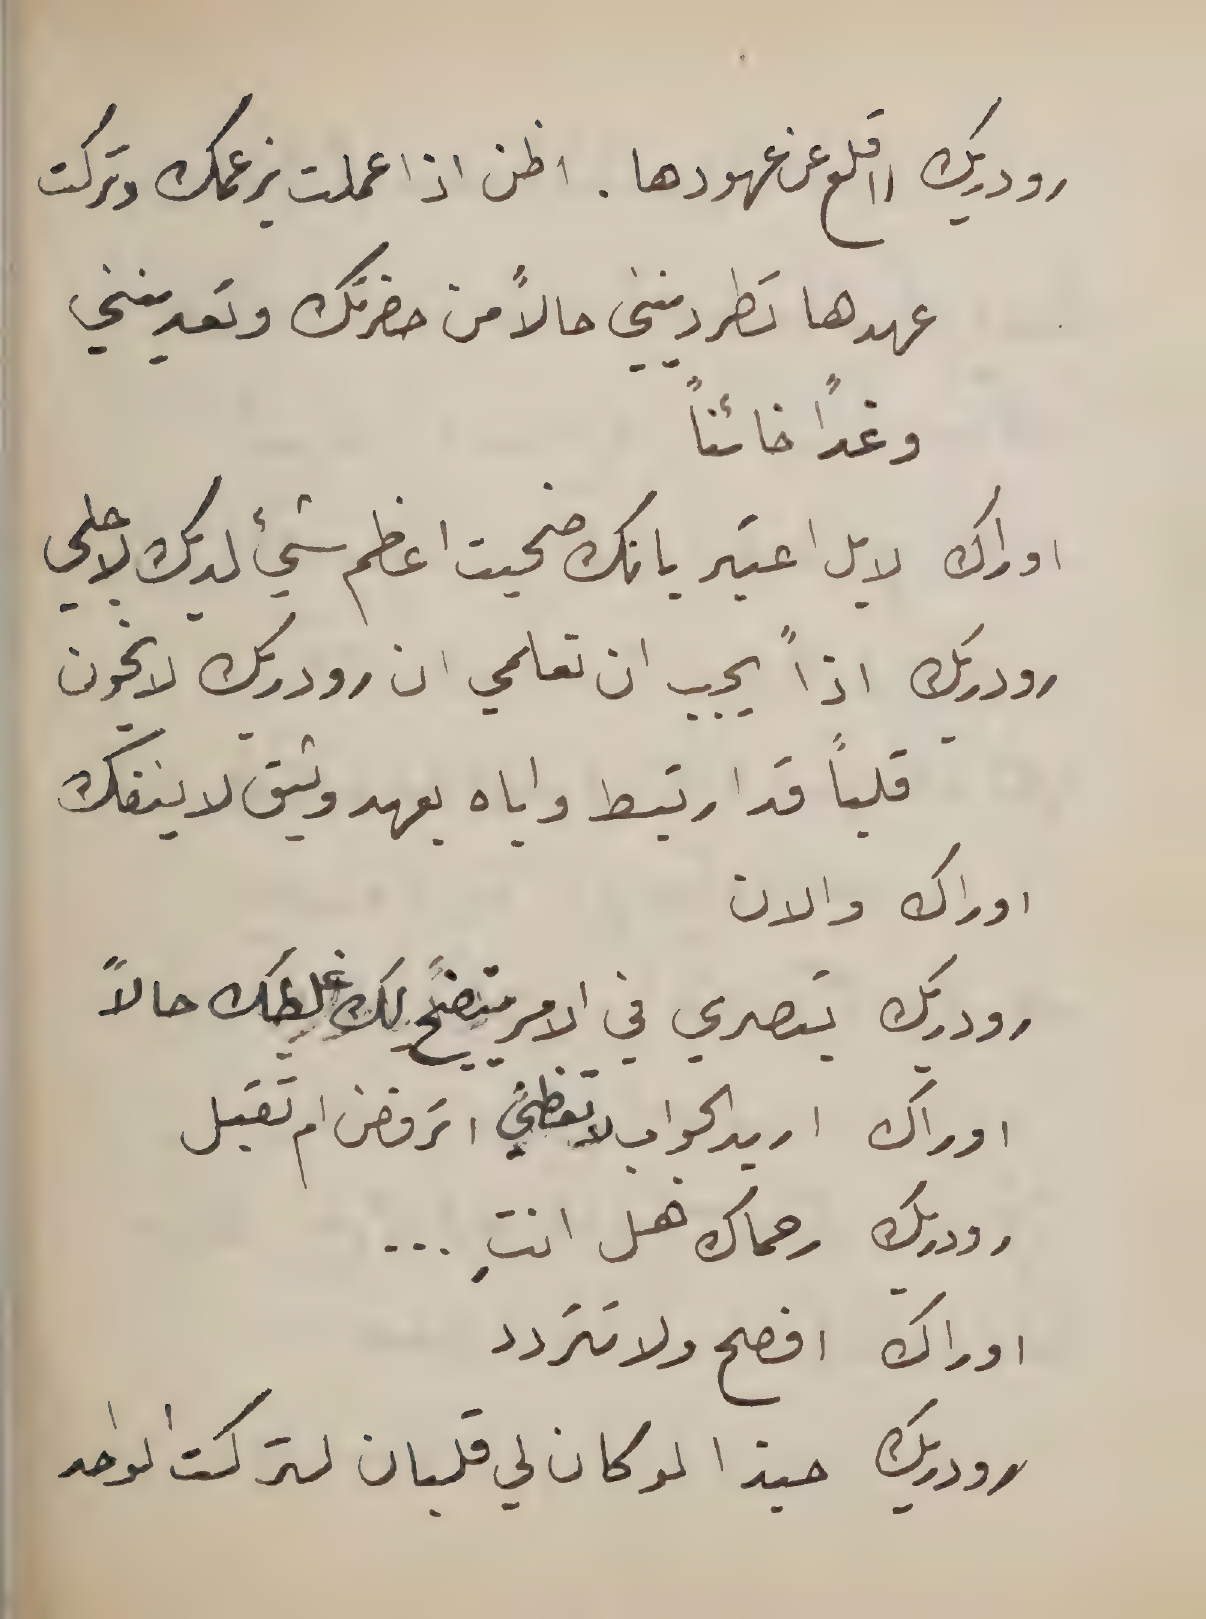 رودريك ااقلع عن عهودها . اظن اذا عملت بزعمك وتركت
عهدها تطردينني حالاً من حضرتك وتعدينني
وغداً خائناً
اوراك لا بل اعتبر بانك ضحيت اعظم شيئ لديك لاجلي
رودريك اذاً يجب ان تعلمي ان رودريك لا يخون
قلباً قد ارتبط واياه بعهد وثيق لا ينفك
اوراك والان
رودريك تبصري في الامر يتضح لك غلطك حالاً
اوراك اريد الجواب لا اترفض ام تقبل
رودريك رحماك هل انتِ ...
اوراك افصح ولا تتردد
رودريك حبذا لو كان لي قلبان لتركت الواحد